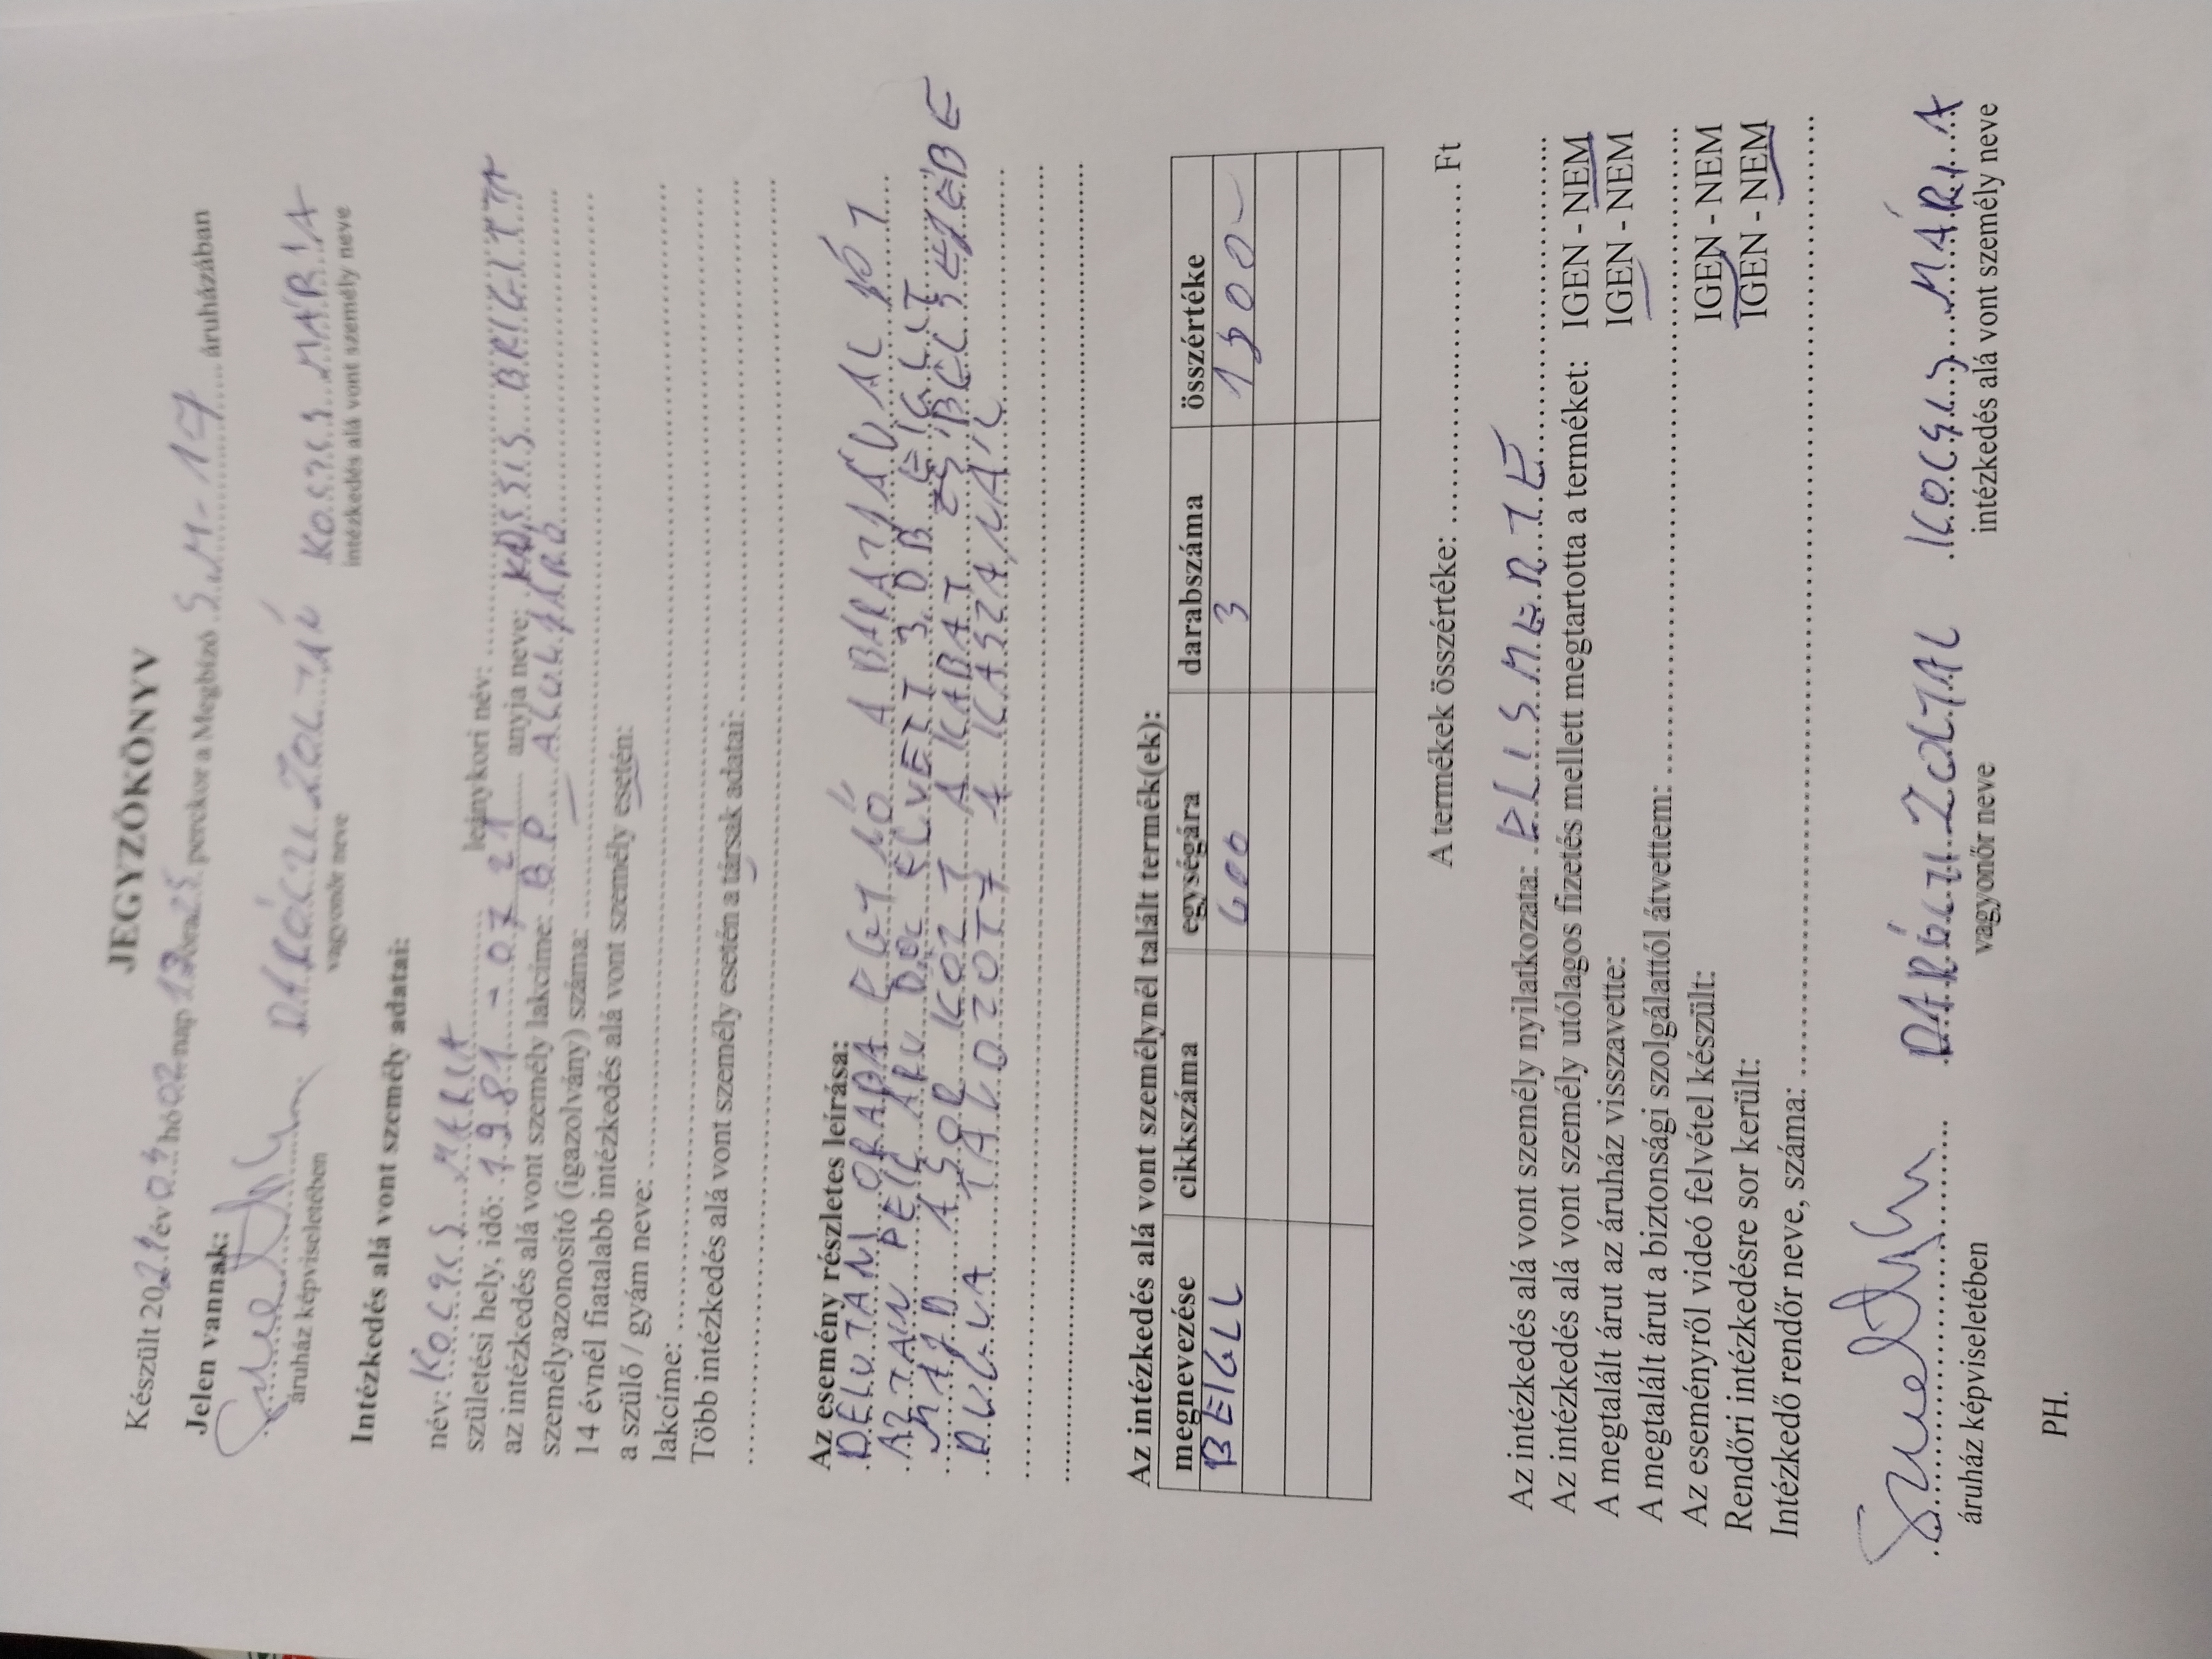 JEGYZŐKÖNYV
Készült 2021 év 03 hó 02 nap 12 óra 25 perckor a Megbízó S.M-17 áruházában
Jelen vannak:
ZOLTÁN KOCSIS MÁRIA
áruház képviseletében vagyonőr neve intézkedés alá vont személy neve
Intézkedés alá vont személy adatai:
név: KOCSIS MÁRIA leánykori név:
születési hely, idő: 1981 - 07 21 anyja neve: BRIGITTA
az intézkedés alá vont személy lakcíme: BP
személyazonosító (igazolvány) száma:
14 évnél fiatalabb intézkedés alá vont személy esetén:
a szülő / gyám neve:
lakcíme:
Több intézkedés alá vont személy esetén a társak adatai:
Az esemény részletes leírása:
DÉLUTÁNI ÓRÁBA EGY NŐ A
AZTÁN ELVETT 3 DB
MAJD A SOR KÖZT A KABÁT ZSEBÉBE
DUGVA TÁVOZOTT A KASZÁNÁL
Az intézkedés alá vont személynél talált termék(ek):
megnevezése cikkszáma egységára darabszáma összértéke
BEIGLI 600 3
A termékek összértéke: Ft
Az intézkedés alá vont személy nyilatkozata: ELISMERTE
Az intézkedés alá vont személy utólagos fizetés mellett megtartotta a terméket: IGEN - NEM
A megtalált árut az áruház visszavette: IGEN - NEM
A megtalált árut a biztonsági szolgálattól átvettem:
Az eseményről videó felvétel készült: IGEN - NEM
Rendőri intézkedésre sor került: IGEN - NEM
Intézkedő rendőr neve, száma:
ZOLTÁN KOCSIS MÁRIA
áruház képviseletében vagyonőr neve intézkedés alá vont személy neve
PH.